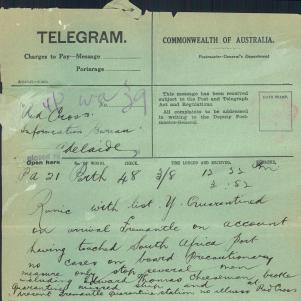 TELEGRAM.
COMMONWEALTH OF AUSTRALIA.
Charges to Pay—Message
Postmaster-General's Department
Porterage
This message has been received
subject to the Post and Telegraph
Act and Regulations.
All complaints to be addressed
in writing to the Deputy Post-
master-General.
Red Cross
Information Bureau
Adelaide
Open here
CHECK.
TIME LODGED AND RECEIVED.
Pa 21 Pth 48 3/8 12 22
Runic with list Y. Quarantined
on arrival Fremantle on account
having touched South Africa Port
no cases on board Precautionary
measure only stop several men
including Edward Thomas Cheeseman broke
quarantine missed ship and at
present Fremantle quarantine station no illness Red Cross